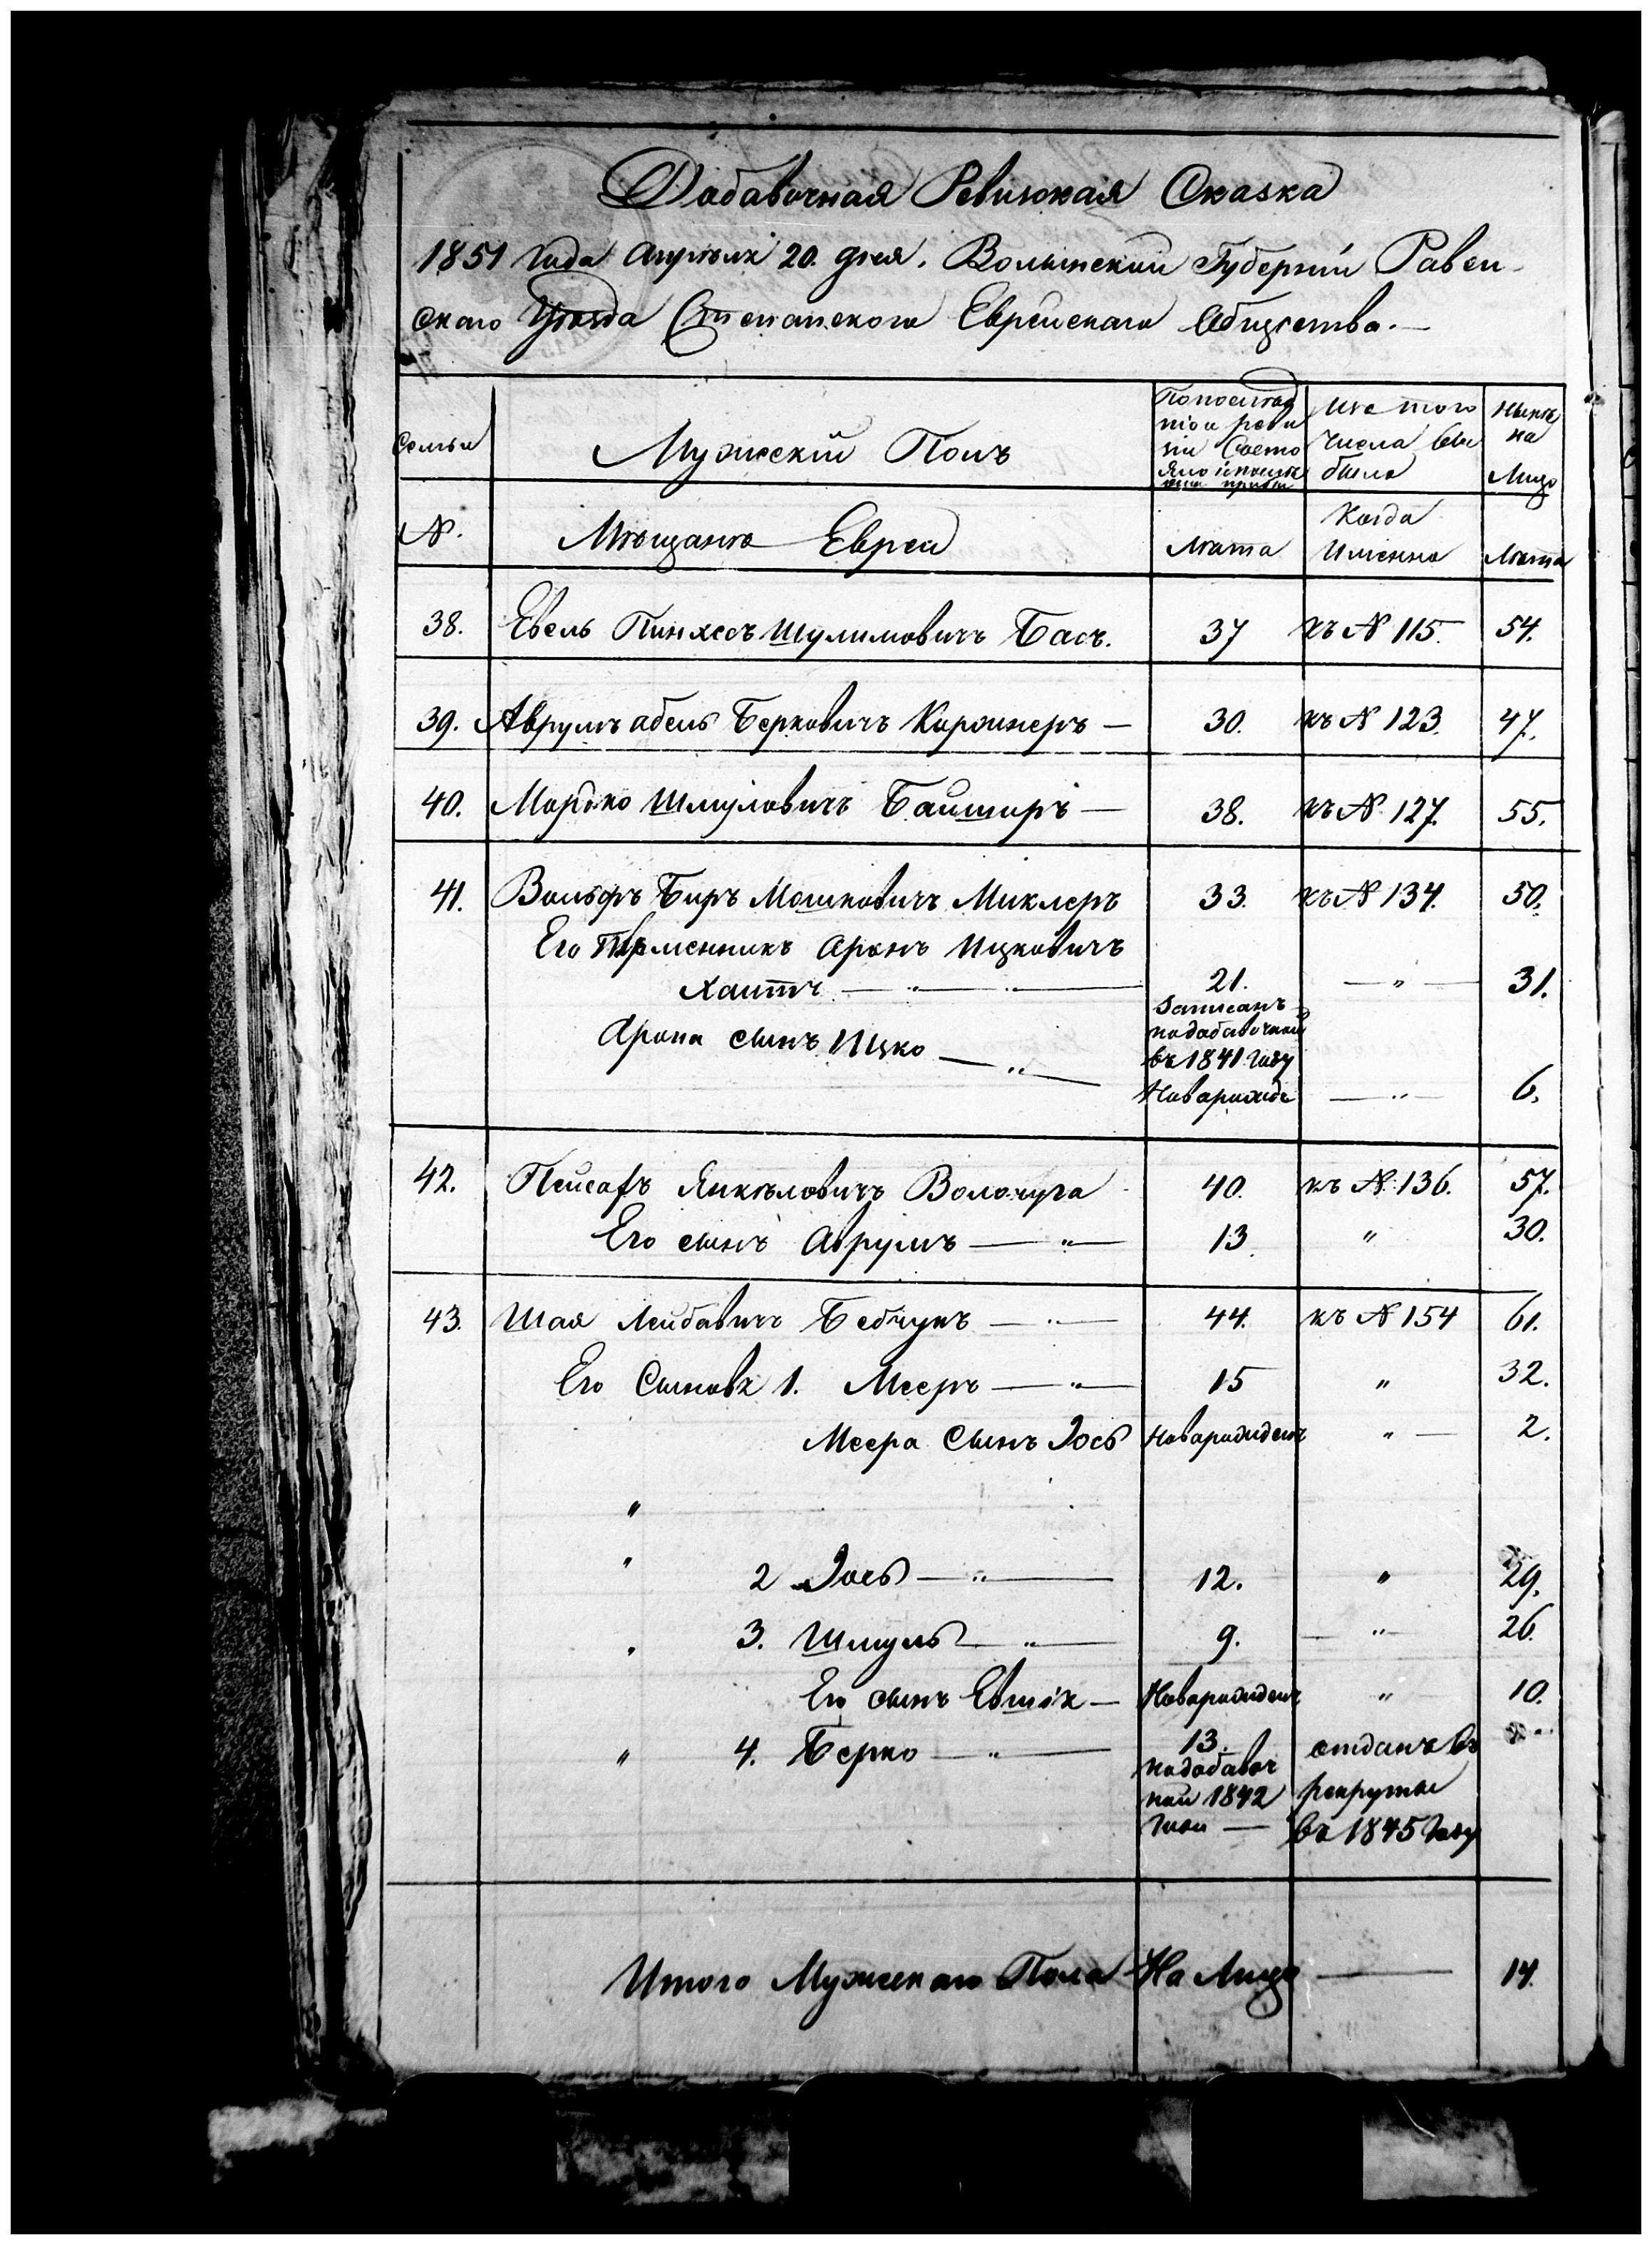 Добавочная Ревизская Сказка
1851 Года Апрѣля 20. дня. Волынской Губерніи Равен-
скаго Уѣзда Степанского Еврейскаго Общества.—
Семьи
Мужескій Полъ
По послѣд
ней реви
зіи Состо
яло
Изъ того
числа вы
было
Нынѣ
на
Лицо
№.
Мѣщане Евреи
Лѣта
Когда
Именно
Лѣта
38. Евель Пинхесъ Шулимовичъ Басъ. 37 къ № 115. 54.
39. Аврумъ абель Берковичъ Коржнеръ — 30. къ № 123. 47.
40. Мордко Шмуловичъ Байширъ — 38. къ № 127. 55.
41. Вольфъ Биръ Мошковичъ Миклеръ 33. къ № 134. 50.
Его Племенникъ Аронъ Ицковичъ
Хаитъ — „ — „ — 21. — „ — 31.
Записанъ
подобавочной
въ 1841 Году
Арона сынъ Ицко — „ —
Новорожде — „ — 6.
42. Пейсахъ Янкѣловичъ Волочуга 40. къ № 136. 57.
Его сынъ Аврумъ — „ — 13. „ 30.
43. Шая Лейбавичъ Бебчукъ — „ — 44. къ № 154 61.
Его Сыновя 1. Мееръ — „ — 15 „ 32.
Меера Сынъ Іось Новорожденъ „ — 2.
„
„ 2 Іось — „ — 12. „ 29.
„ 3. Шмуль — „ — 9. — „ — 26.
Его сынъ — Новорожденъ „ 10.
„ 4. Берко — „ — 13. отданъ въ
подобавоч
ной 1842 рекруты
— въ 1845 Году
Итого Мужескаго Пола На Лицо — 14.